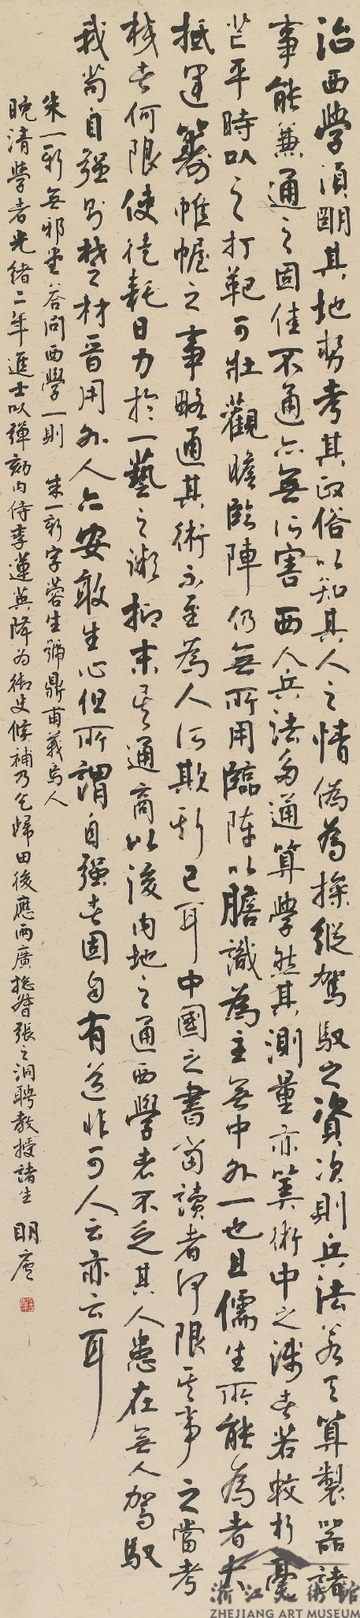 治西學須明其地勢考其政俗以知其人之情偽為操縱駕馭之資次則兵法若天算製器諸
事能兼通之固佳不通亦無所害西人兵法多通算學然其測量亦算術中之淺者若較折毫
芒平時以之打靶可壯觀瞻臨陣仍無所用臨陣以膽識為主無中外一也且儒生所能為者大
抵運籌帷幄之事略通其術不至為人所欺斯已耳中國之書當讀者何限其事之當考
校者何限使徒耗日力於一藝之微抑末矣通商以後內地之通西學者不乏其人患在無人駕馭
我苟自強則楚材晉用外人亦安敢生心但所謂自強者固自有道非可人云亦云耳
朱一新無邪堂答問西學一則 朱一新字蓉生號鼎甫義烏人
晚清學者光緒二年進士以彈劾內侍李蓮英降為御史候補乃乞歸田後應兩廣總督張之洞聘教授諸生 明廬
浙江美術館
ZHEJIANG ART MUSEUM